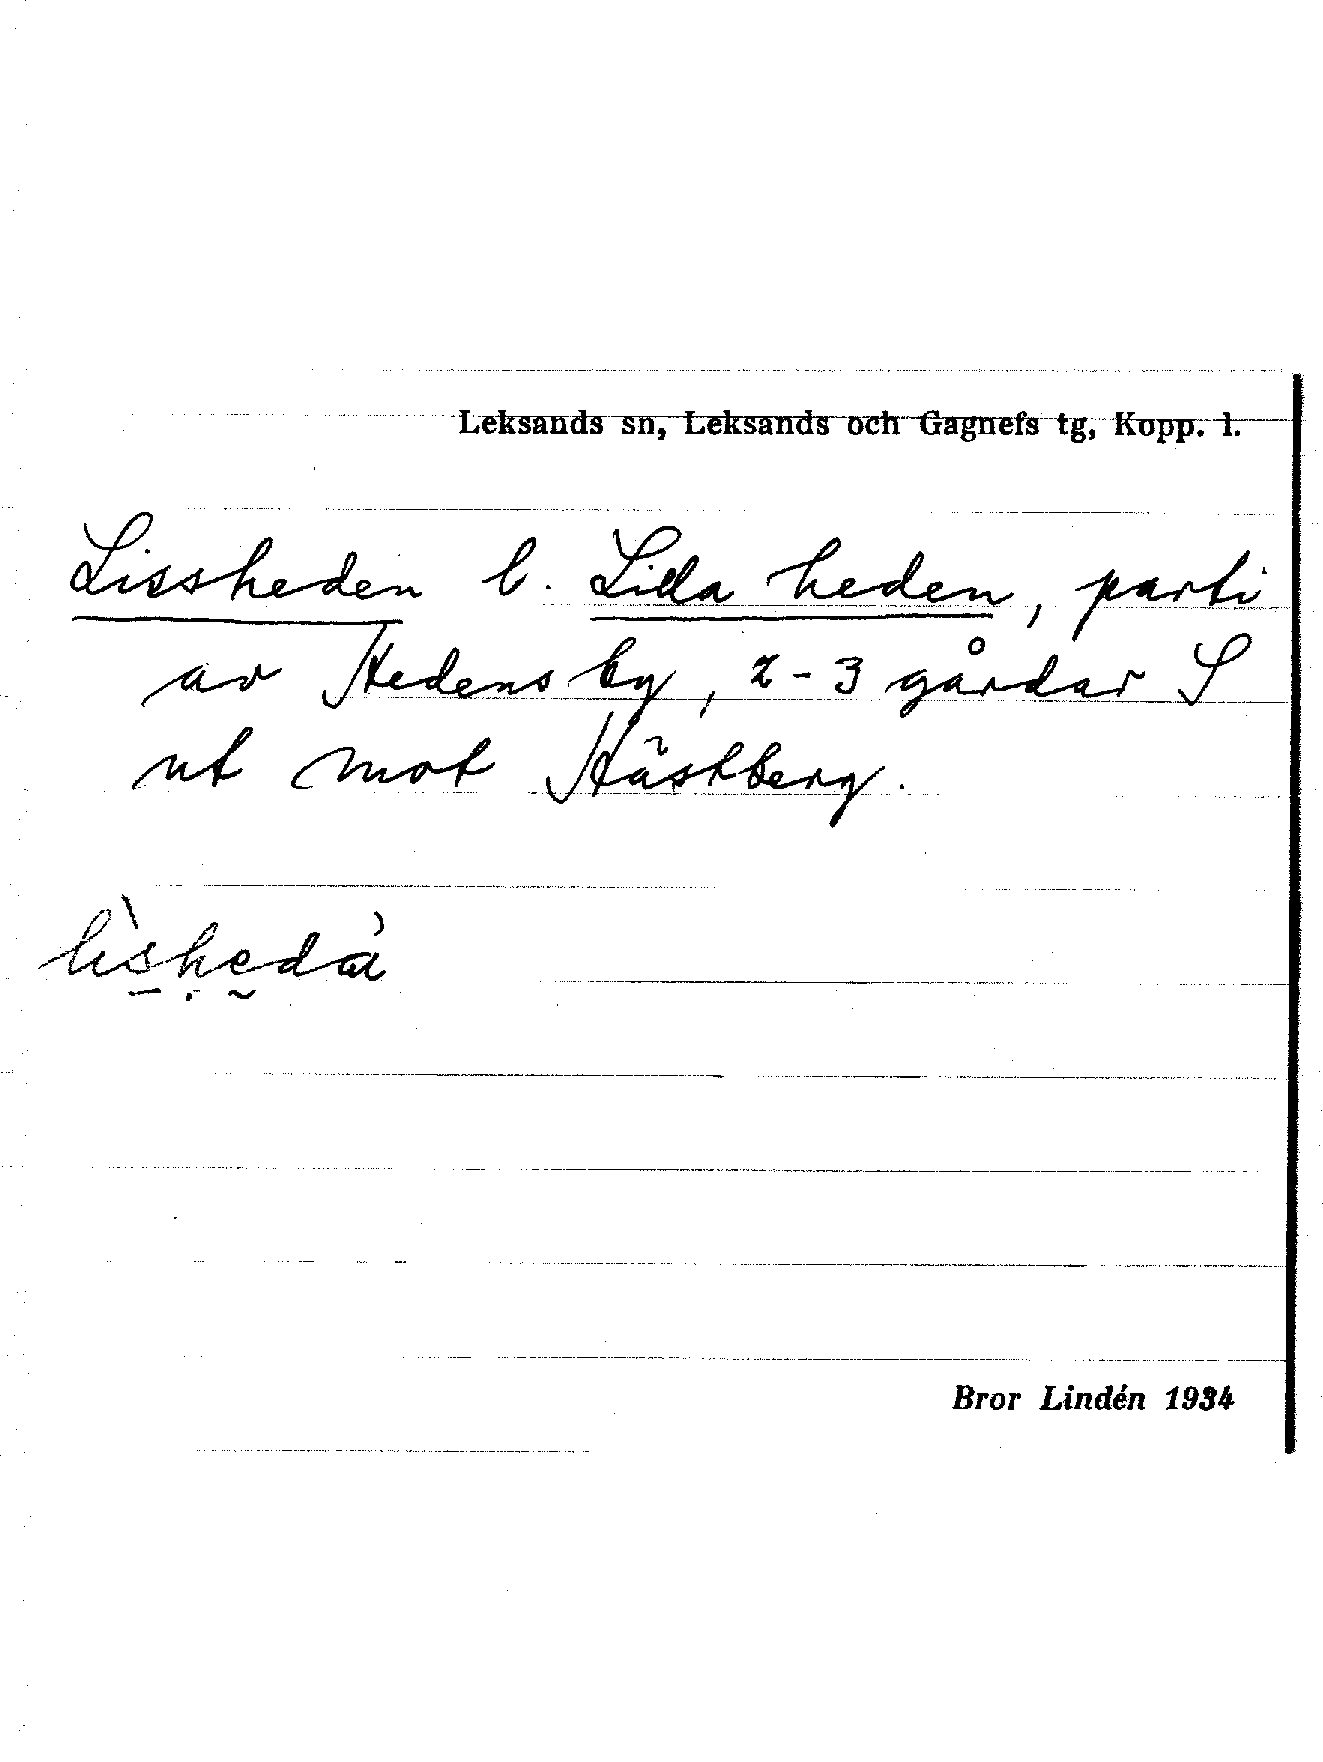 Leksands sn, Leksands och Gagnefs tg, Kopp. l.
Lissheden l. Lilla heden, parti
av Hedens by, 2-3 gårdar S
ut mot Hästberg.
Bror Lindén 1934